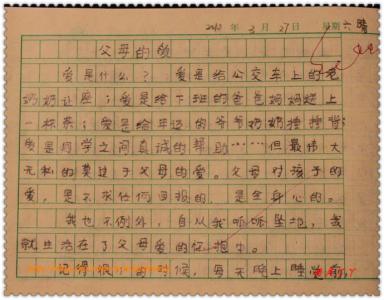 2010 年 3 月 27 日 星期 六 晴
父母的爱
爱是什么？爱是给公交车上的老
奶奶让座；爱是给下班的爸爸妈妈送上
一杯茶；爱是给年迈的爷爷奶奶捶捶背；
爱是同学之间真诚的帮助……但最伟大
无私的莫过于父母的爱。父母对孩子的
爱，是不求任何回报的，是全身心的。
我也不例外，自从我呱呱坠地，我
就生活在了父母爱的怀抱中。
记得很 的时候，每天晚上睡觉前